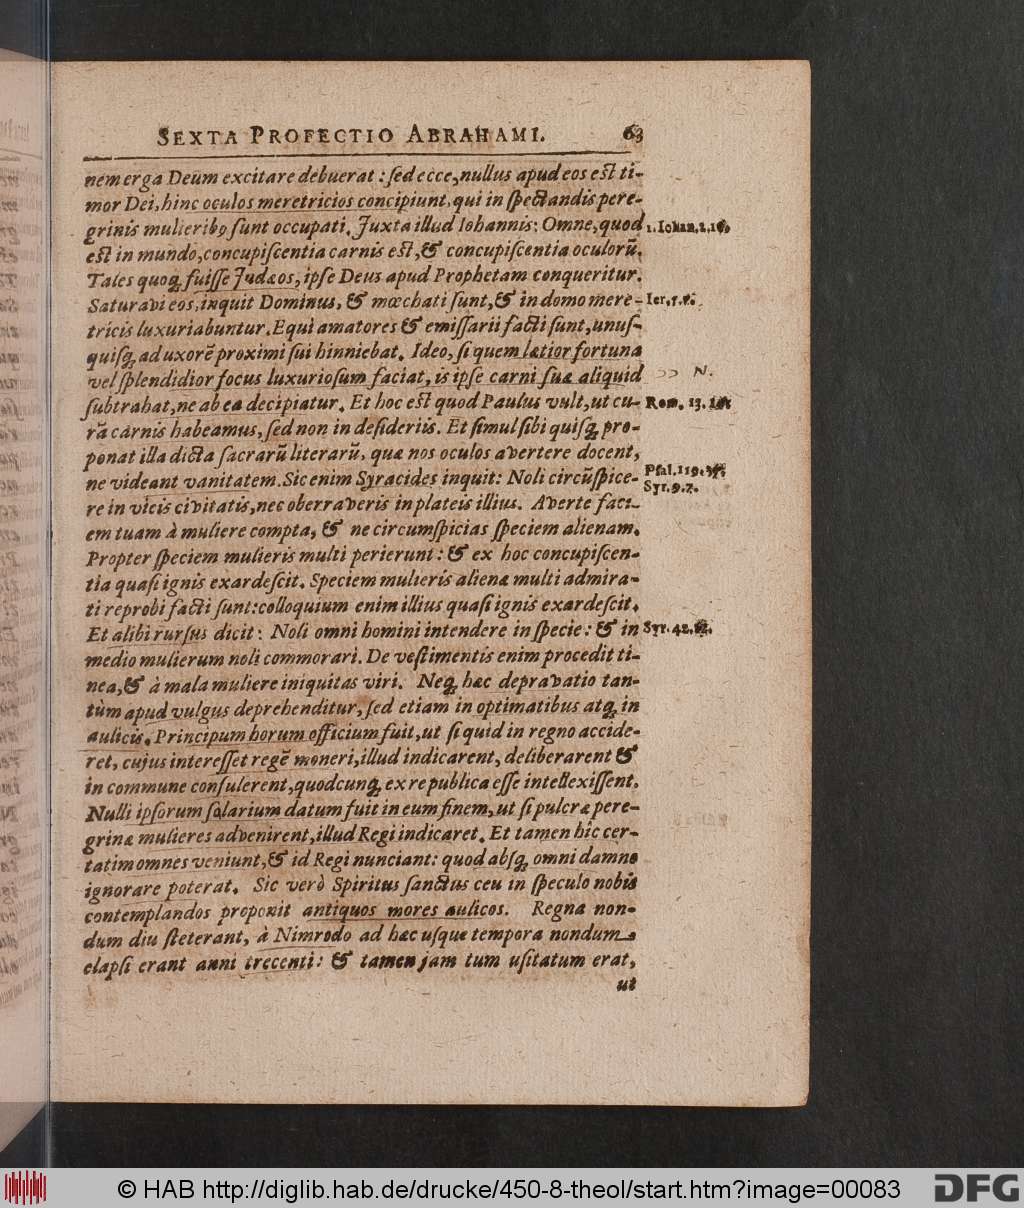 SEXTA PROFECTIO ABRAHAMI. 63
nem erga Deum excitare debuerat: ſed ecce, nullus apud eos eſt ti-
mor Dei, hinc oculos meretricios concipiunt, qui in ſpectandis pere-
grinis mulieribꝰ ſunt occupati. Juxta illud Iohannis: Omne, quod 1. Iohan. 2. 16.
eſt in mundo, concupiſcentia carnis eſt, & concupiſcentia oculorũ.
Tales quoq; fuiſſe Judæos, ipſe Deus apud Prophetam conqueritur.
Saturavi eos, inquit Dominus, & mœchati ſunt, & in domo mere- Ier. 5.
tricis luxuriabuntur. Equi amatores & emiſſarii facti ſunt, unuſ-
quiſq; ad uxorẽ proximi ſui hinniebat. Ideo, ſi quem lætior fortuna
vel ſplendidior focus luxurioſum faciat, is ipſe carni ſuæ aliquid N.
ſubtrahat, ne ab ea decipiatur. Et hoc eſt quod Paulus vult, ut cu- Rom. 13. 14.
rã carnis habeamus, ſed non in deſideriis. Et ſimul ſibi quiſq; pro-
ponat illa dicta ſacrarũ literarũ, quæ nos oculos avertere docent,
ne videant vanitatem. Sic enim Syracides inquit: Noli circũſpice- Pſal. 119. 37.
re in vicis civitatis, nec oberraveris in plateis illius. Averte faci- Syr. 9. 7.
em tuam à muliere compta, & ne circumſpicias ſpeciem alienam.
Propter ſpeciem mulieris multi perierunt: & ex hoc concupiſcen-
tia quaſi ignis exardeſcit. Speciem mulieris alienæ multi admira-
ti reprobi facti ſunt: colloquium enim illius quaſi ignis exardeſcit.
Et alibi rurſus dicit: Noli omni homini intendere in ſpecie: & in Syr. 42. 12.
medio mulierum noli commorari. De veſtimentis enim procedit ti-
nea, & à mala muliere iniquitas viri. Neq; hæc depravatio tan-
tùm apud vulgus deprehenditur, ſed etiam in optimatibus atq; in
aulicis. Principum horum officium fuit, ut ſi quid in regno accide-
ret, cujus intereſſet regẽ moneri, illud indicarent, deliberarent &
in commune conſulerent, quodcunq; ex republica eſſe intellexiſſent.
Nulli ipſorum ſalarium datum fuit in eum finem, ut ſi pulcræ pere-
grinæ mulieres advenirent, illud Regi indicaret. Et tamen hic cer-
tatim omnes veniunt, & id Regi nunciant: quod abſq; omni damno
ignorare poterat. Sic verò Spiritus ſanctus ceu in ſpeculo nobis
contemplandos proponit antiquos mores aulicos. Regna non-
dum diu ſteterant, à Nimrodo ad hæc uſque tempora nondum
elapſi erant anni trecenti: & tamen jam tum uſitatum erat,
ut
© HAB http://diglib.hab.de/drucke/450-8-theol/start.htm?image=00083
DFG